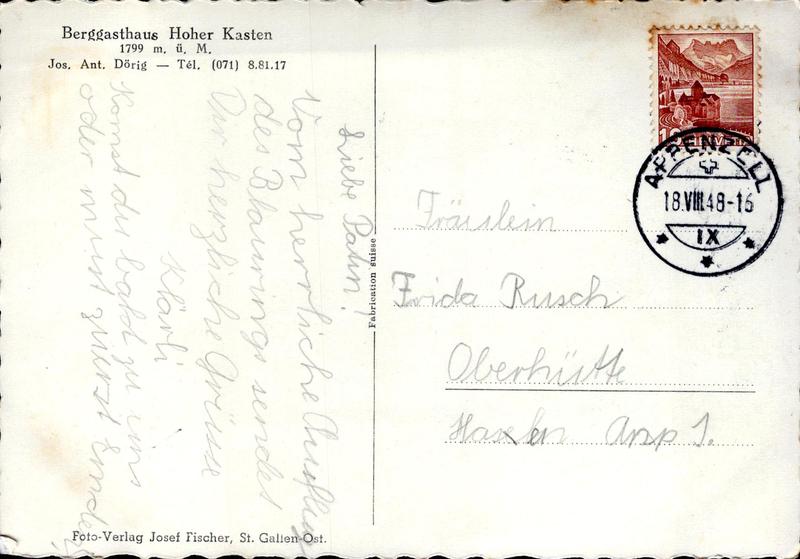 Berggasthaus Hoher Kasten
1799 m. ü. M.
Jos. Ant. Dörig — Tél. (071) 8.81.17
Liebe Patin!
Vom herrliche Ausflug
des Blaurings sendet
Dir herzliche Grüsse
Klärli
Komst du bald zu uns
oder must zuerst Emden
Fabrication suisse
Foto-Verlag Josef Fischer, St. Gallen-Ost.
HELVETIA
APPENZELL
18.VIII.48-16
IX
Fräulein
Frida Rusch
Oberhütte
Haslen Anp I.